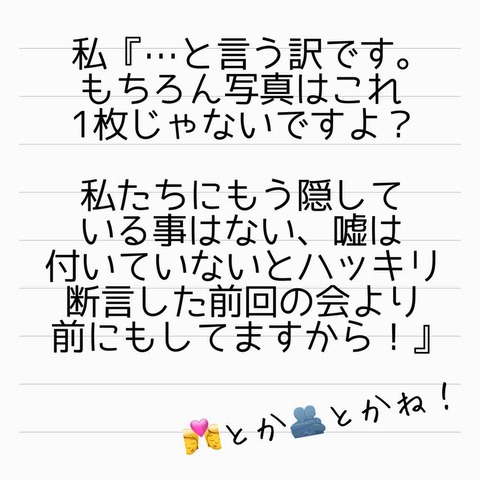 私『…と言う訳です。
もちろん写真はこれ
1枚じゃないですよ？
私たちにもう隠して
いる事はない、嘘は
付いていないとハッキリ
断言した前回の会より
前にもしてますから！』
👩‍❤️‍💋‍👨とか🫂とかね！